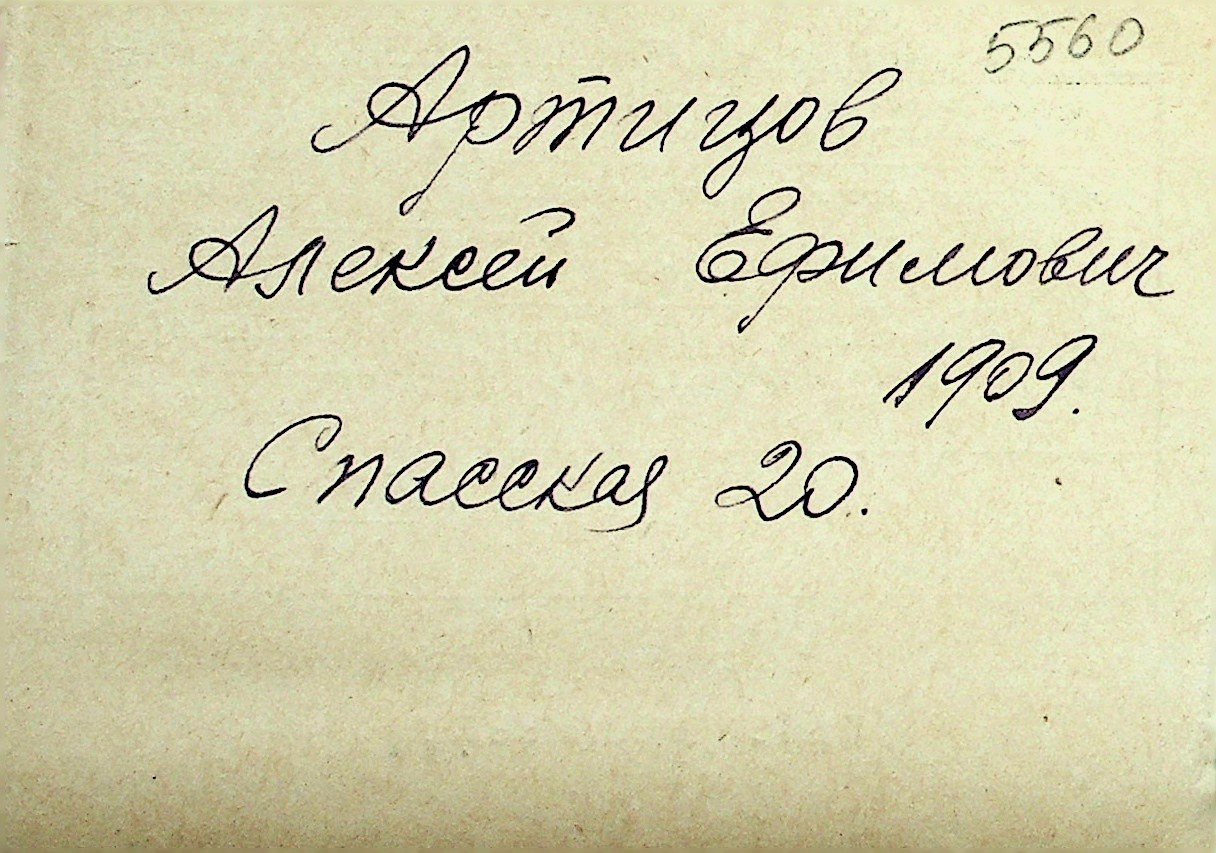 5560
Артицов
Алексей Ефимович
1909.
Спасская 20.